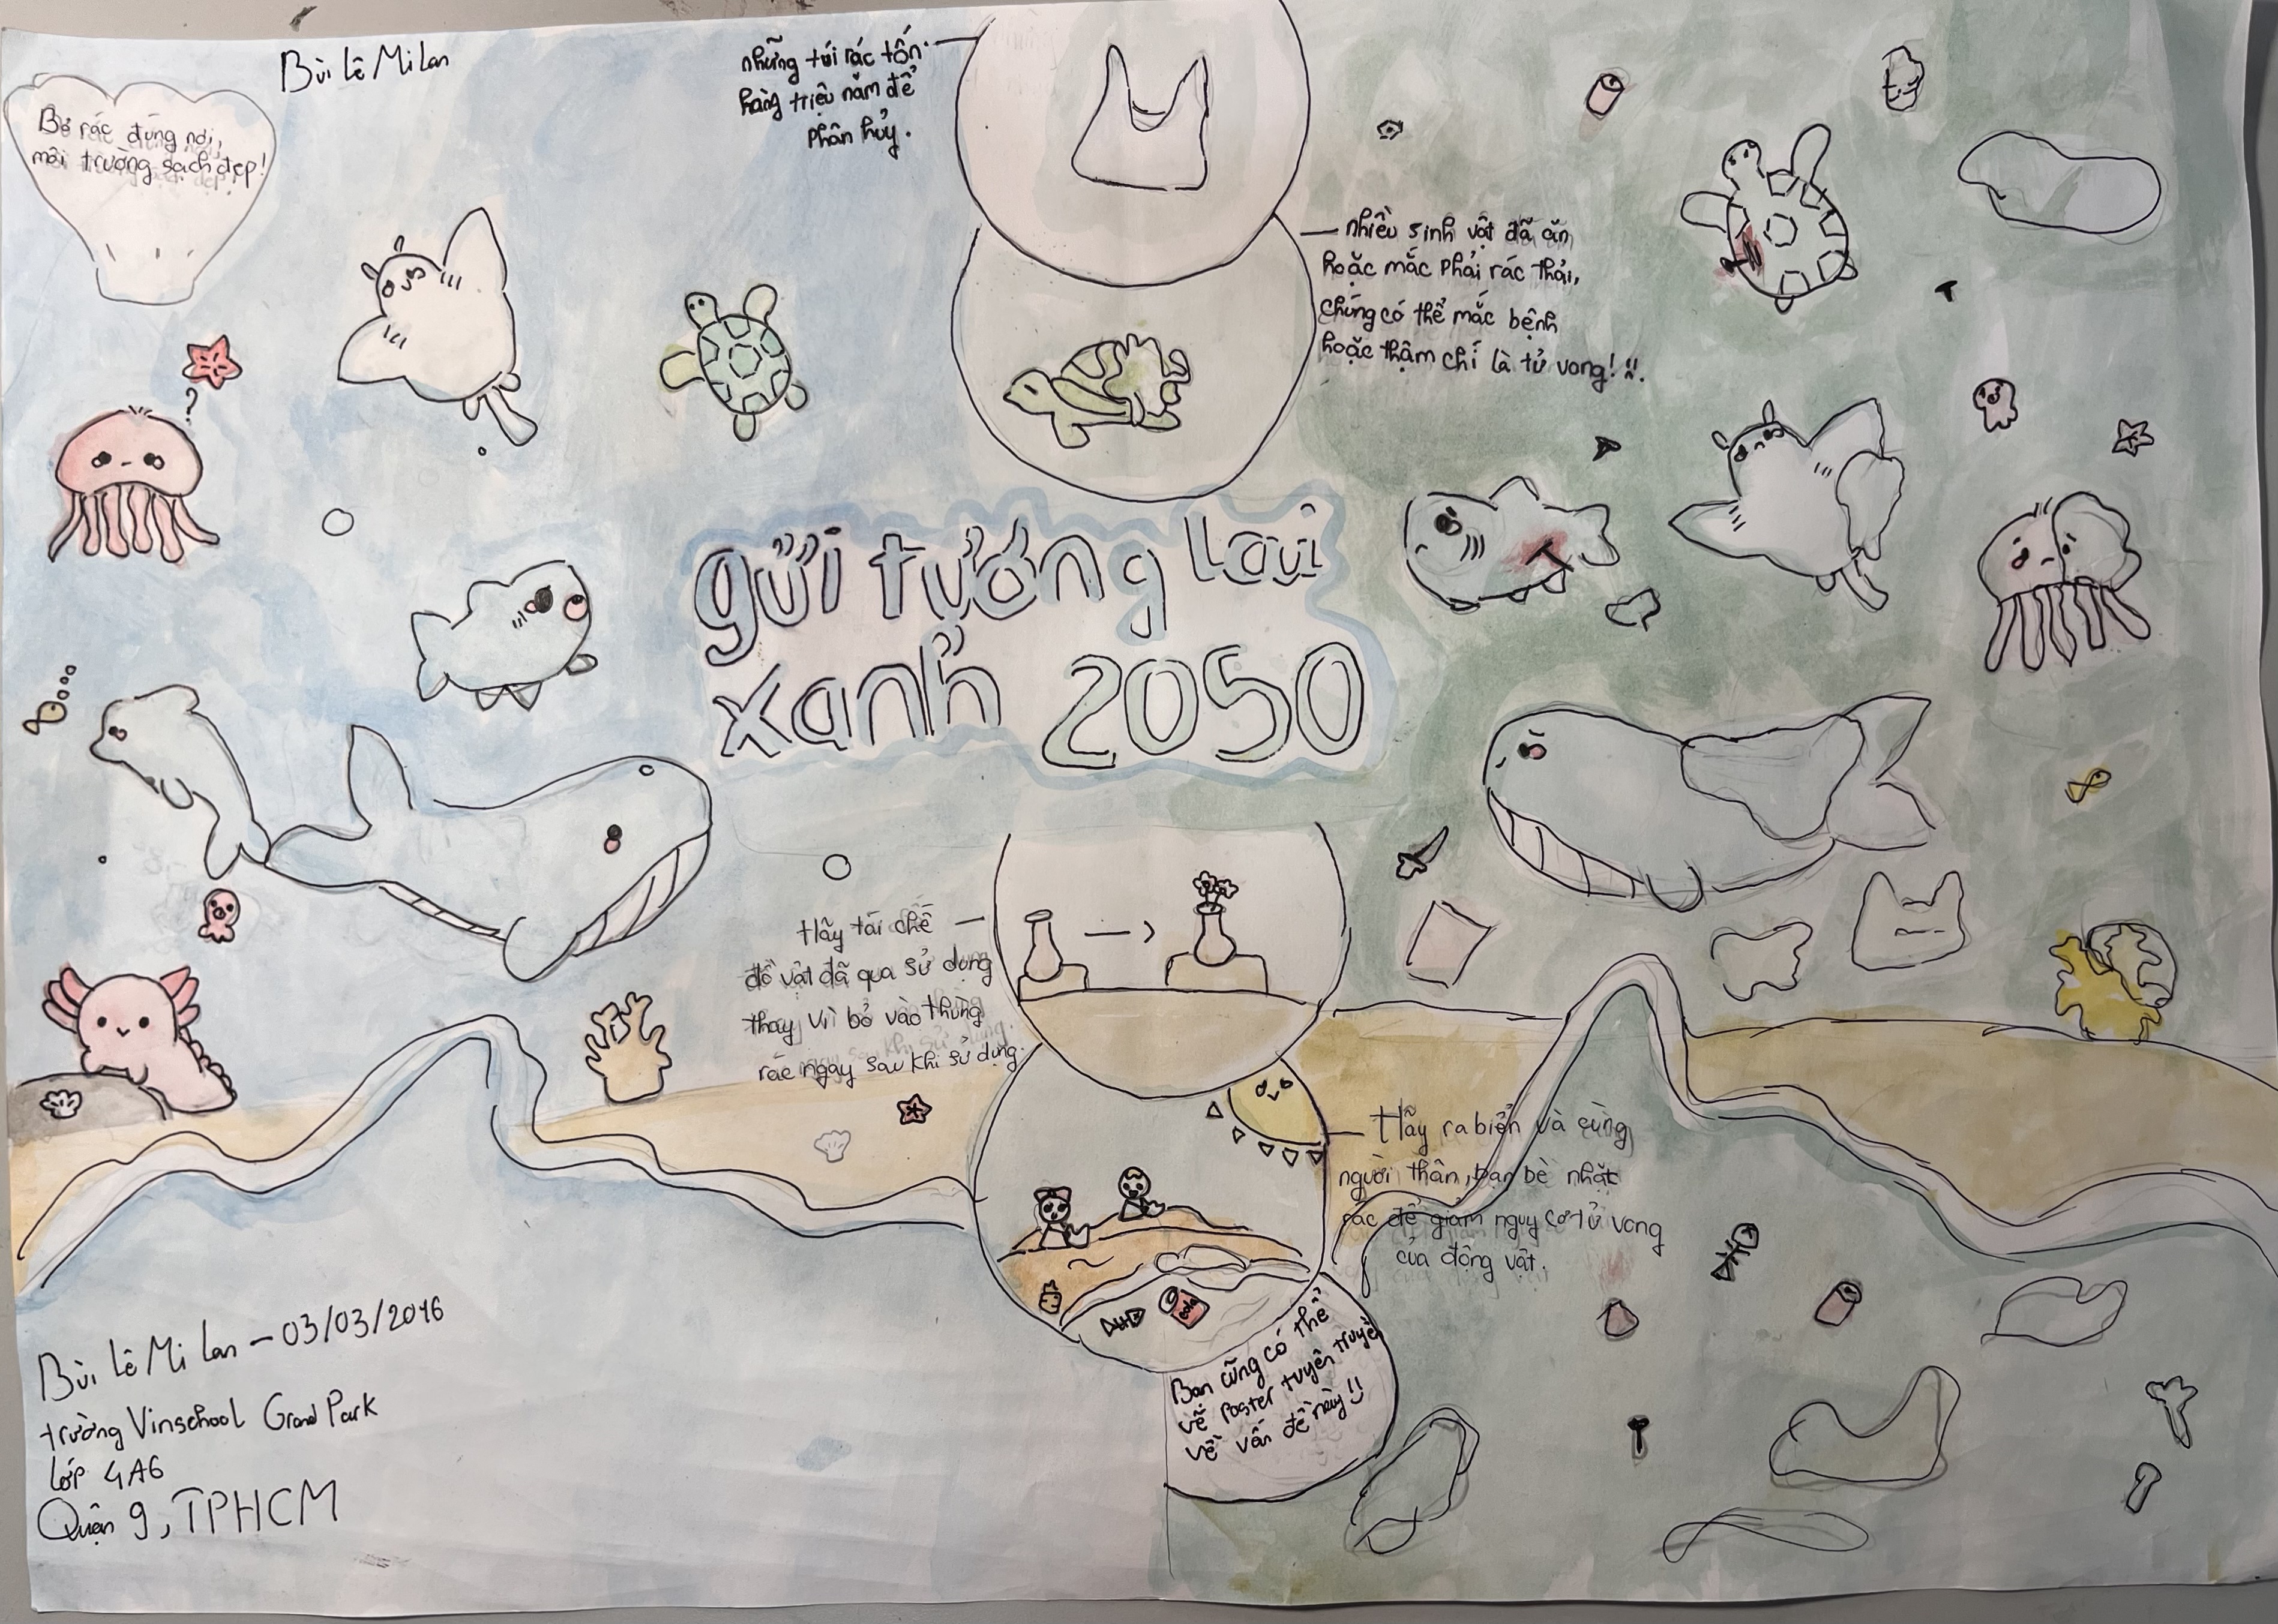 Bùi Lê Mi Lan
Bỏ rác đúng nơi,
môi trường sạch đẹp!
những túi rác tốn
hàng triệu năm để
phân hủy.
nhiều sinh vật đã ăn
hoặc mắc phải rác thải,
chúng có thể mắc bệnh
hoặc thậm chí là tử vong!!!
?
gửi tương lai
xanh 2050
Hãy tái chế
đồ vật đã qua sử dụng
thay vì bỏ vào thùng
rác ngay sau khi sử dụng.
Hãy ra biển và cùng
người thân, bạn bè nhặt
rác để giảm nguy cơ tử vong
của động vật.
Bạn cũng có thể
vẽ Poster tuyên truyền
về vấn đề này!!
Bùi Lê Mi Lan - 03/03/2016
trường Vinschool Grand Park
lớp 4A6
Quận 9, TPHCM